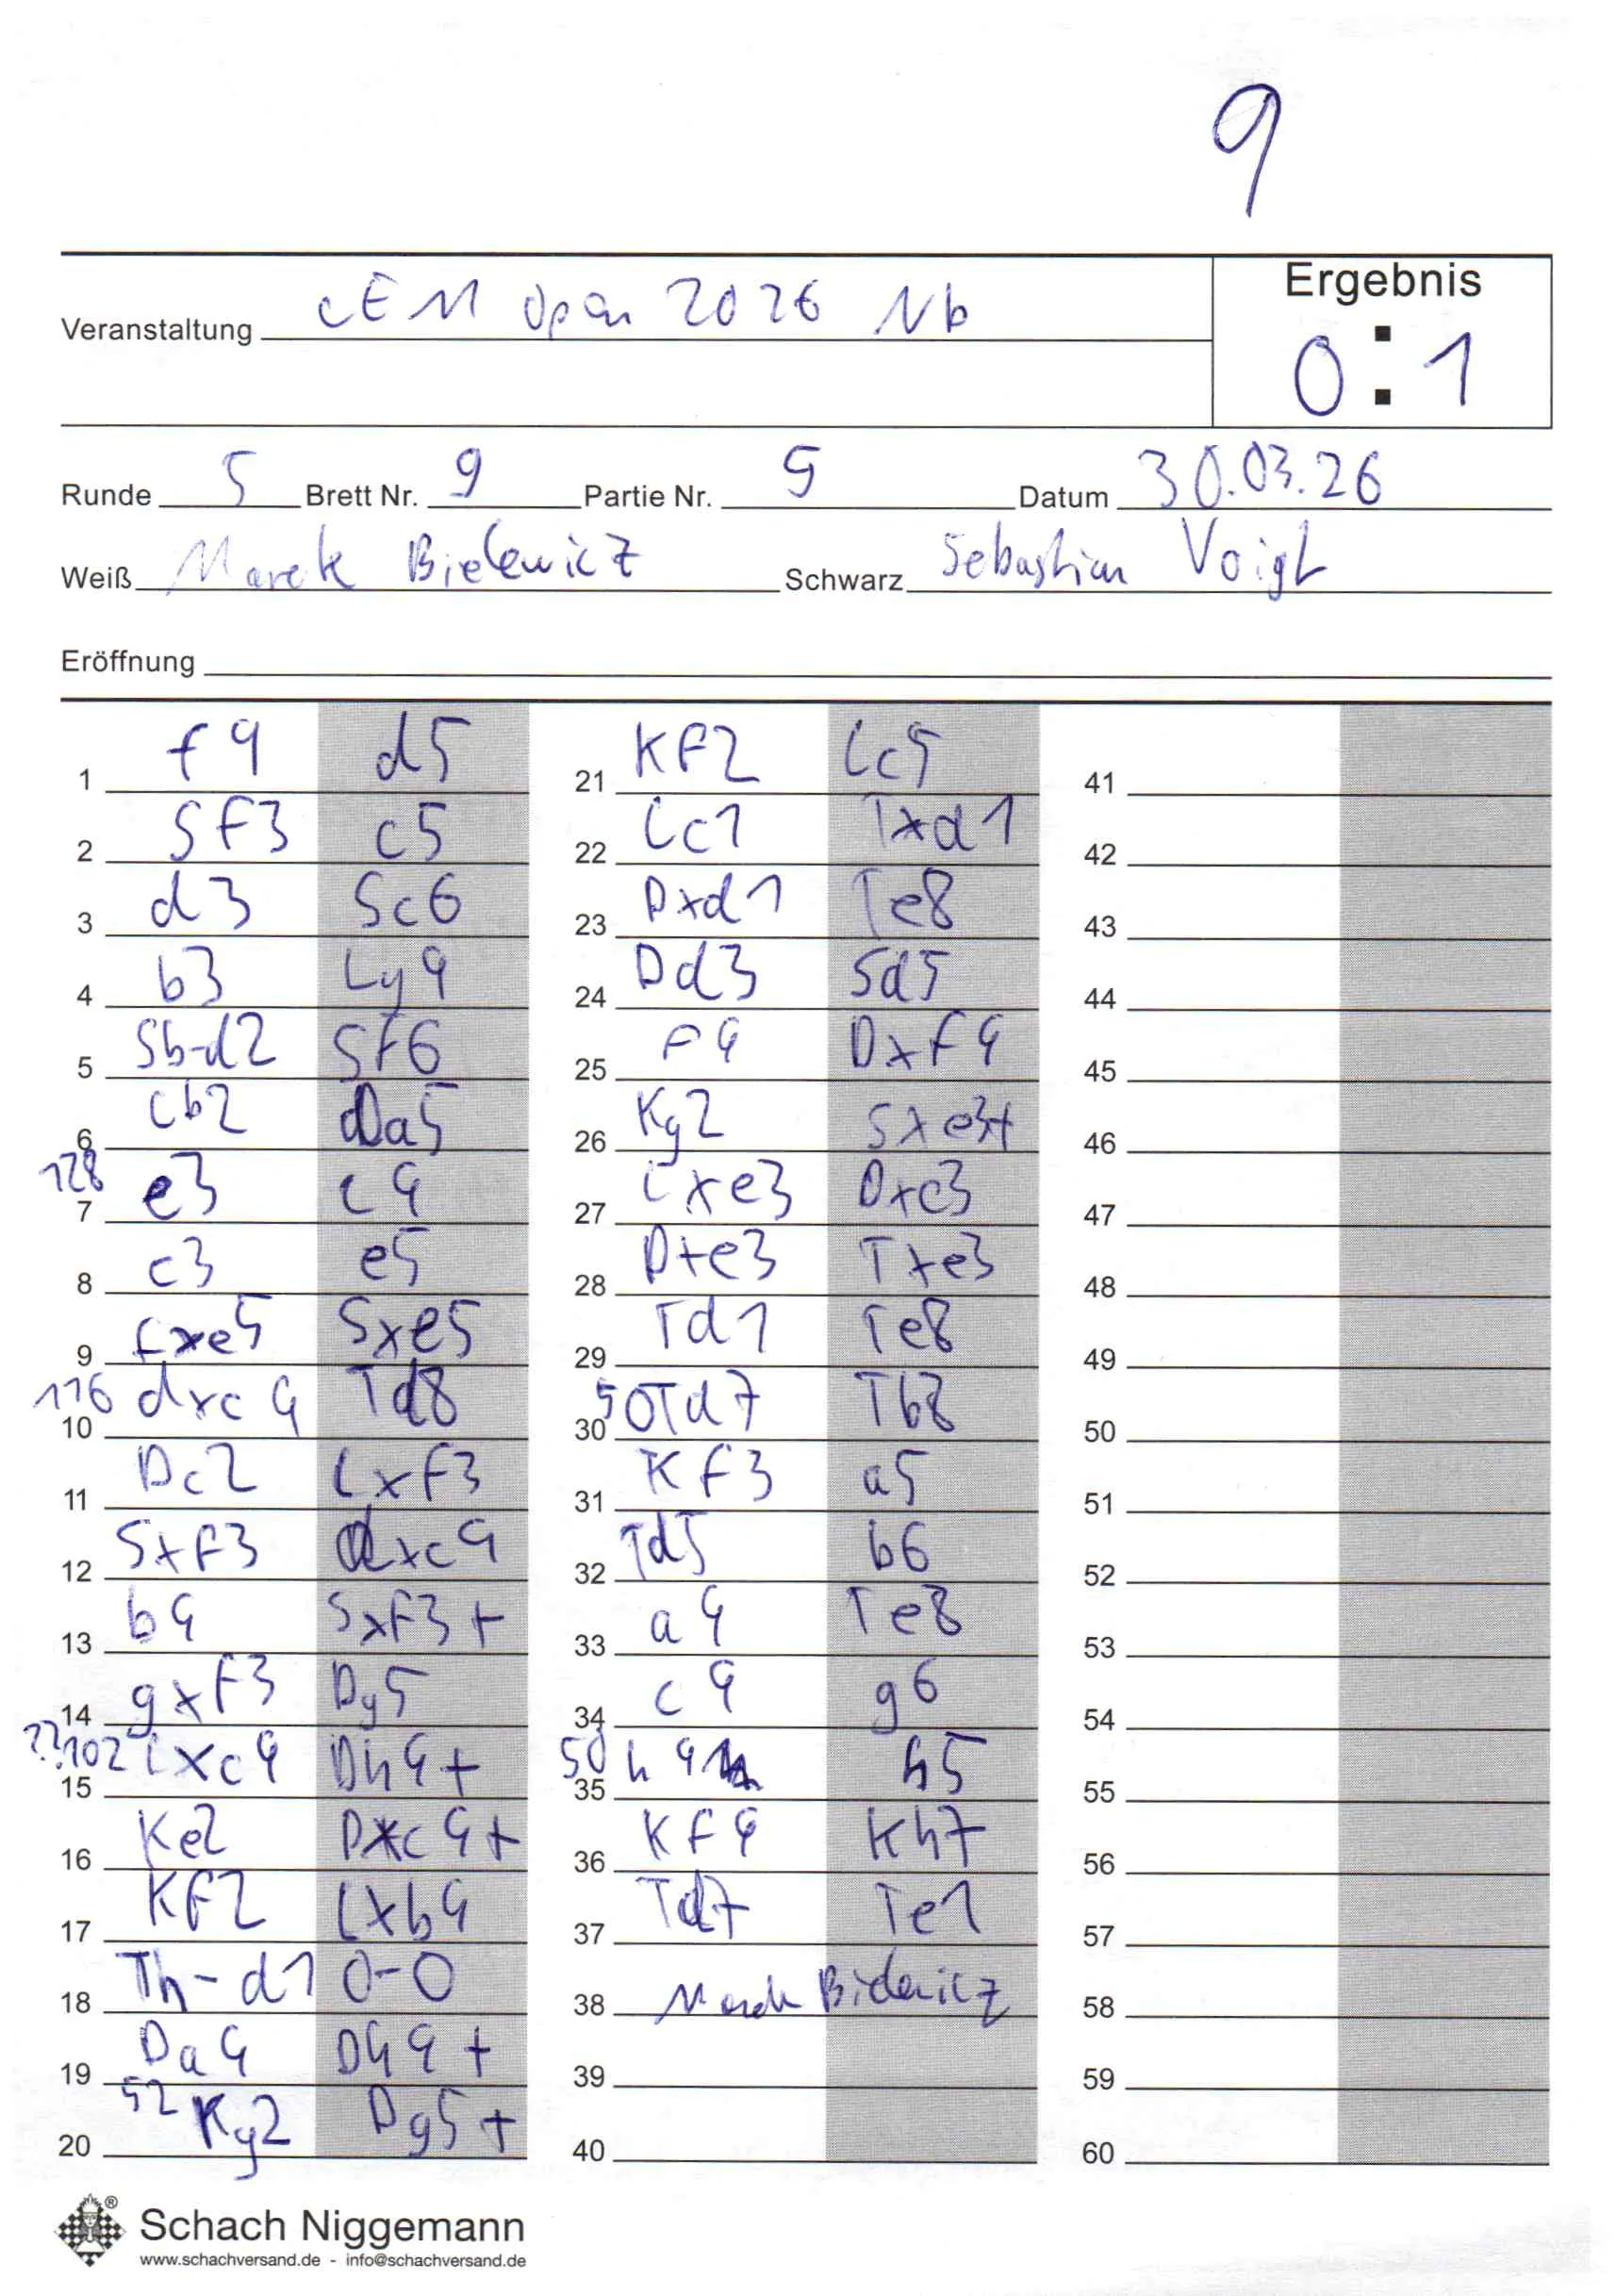 9
Ergebnis
Veranstaltung cEM Open 2026 Nb
0 : 1
Runde 5 Brett Nr. 9 Partie Nr. 5 Datum 30.03.26
Weiß Marek Bielewicz Schwarz Sebastian Voigt
Eröffnung
1 f4 d5 21 Kf2 Lc5 41
2 Sf3 c5 22 Lc1 Txd1 42
3 d3 Sc6 23 Dxd1 Te8 43
4 b3 Lg4 24 Dd3 Sd5 44
5 Sb-d2 Sf6 25 F4 Dxf4 45
6 Lb2 Da5 26 Kg2 Sxe3+ 46
128 7 e3 c4 27 Lxe3 Dxc3 47
8 c3 e5 28 Dxe3 Txe3 48
9 fxe5 Sxe5 29 Td1 Te8 49
116 10 dxc4 Td8 30 50 Td7 Tb8 50
11 Dc2 Lxf3 31 Kf3 a5 51
12 Sxf3 dxc4 32 Td5 b6 52
13 b4 Sxf3+ 33 a4 Te8 53
14 gxf3 Dg5 34 c4 g6 54
??102 15 Lxc4 Dh4+ 50 35 h4 h5 55
16 Ke2 Dxc4+ 36 Kf4 Kh7 56
17 Kf2 Lxb4 37 Td7 Te1 57
18 Th-d1 0-0 38 Marek Bielewicz 58
19 Da4 Dh4+ 39 59
52 20 Kg2 Dg5+ 40 60
Schach Niggemann
www.schachversand.de - info@schachversand.de